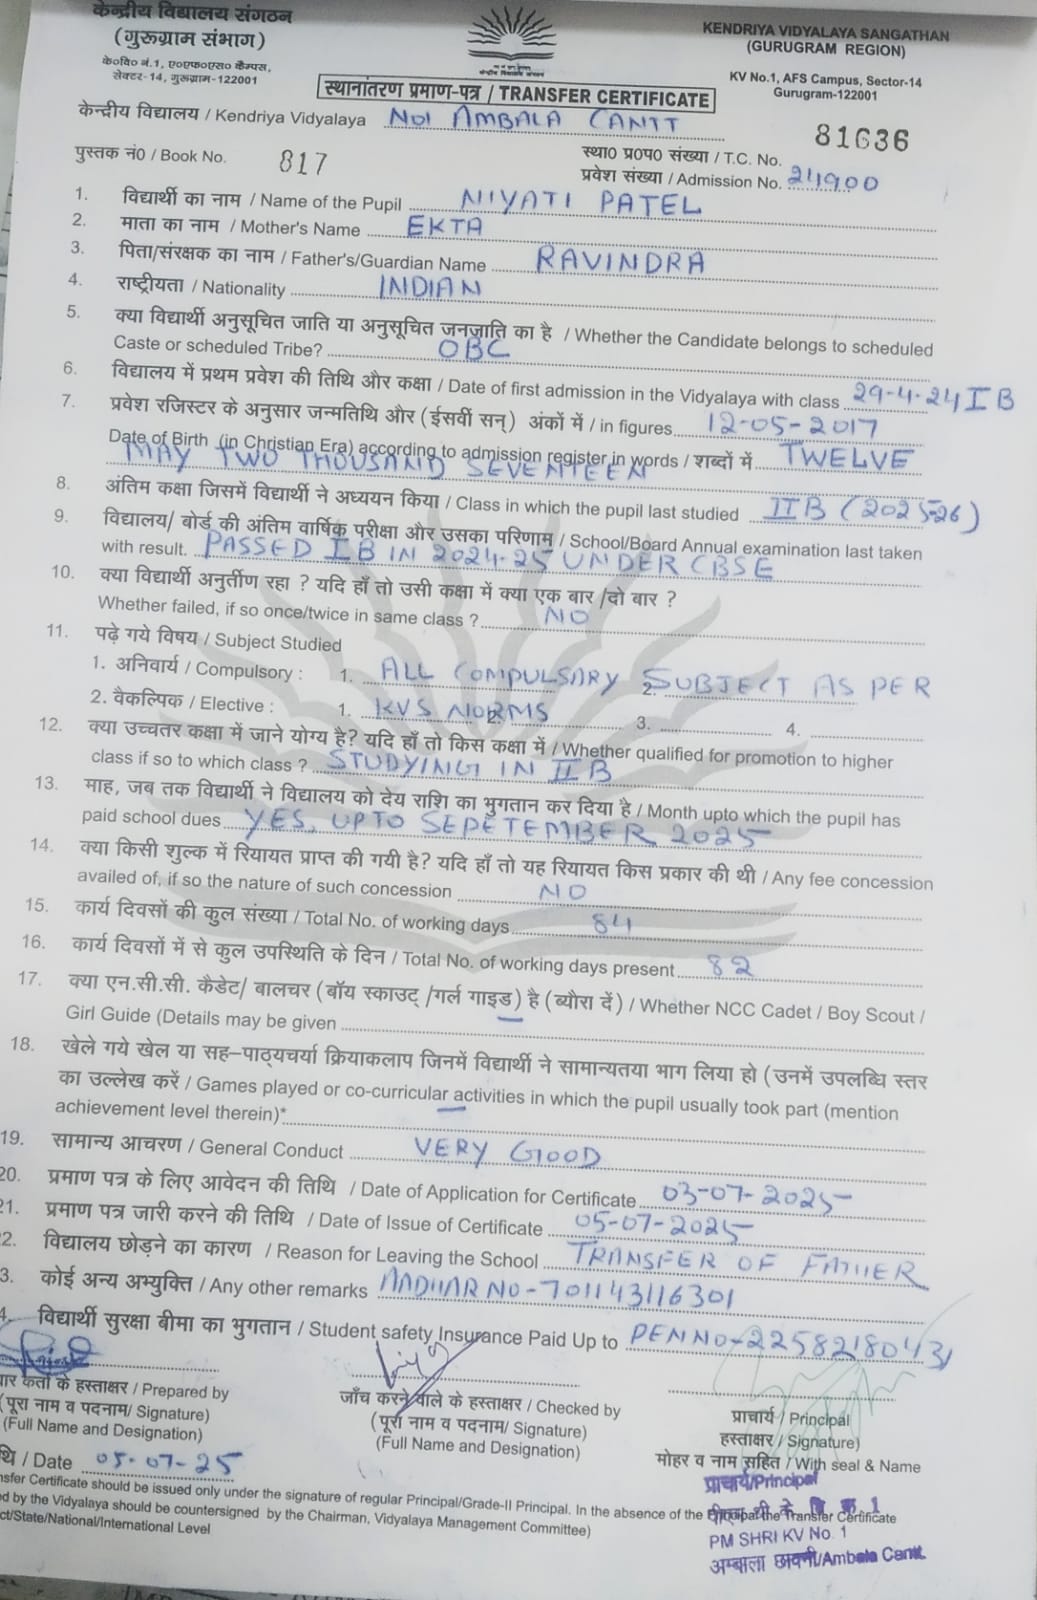 केन्द्रीय विद्यालय संगठन
(गुरूग्राम संभाग)
के०वि० नं.1, ए०एफ०एस० कैम्पस,
सेक्टर-14, गुरूग्राम-122001
KENDRIYA VIDYALAYA SANGATHAN
(GURUGRAM REGION)
KV No.1, AFS Campus, Sector-14
Gurugram-122001
स्थानांतरण प्रमाण-पत्र / TRANSFER CERTIFICATE
केन्द्रीय विद्यालय / Kendriya Vidyalaya NO1 AMBALA CANTT
81636
पुस्तक नं0 / Book No. 817
स्था0 प्र0प0 संख्या / T.C. No.
प्रवेश संख्या / Admission No. 24900
1. विद्यार्थी का नाम / Name of the Pupil NIYATI PATEL
2. माता का नाम / Mother's Name EKTA
3. पिता/संरक्षक का नाम / Father's/Guardian Name RAVINDRA
4. राष्ट्रीयता / Nationality INDIAN
5. क्या विद्यार्थी अनुसूचित जाति या अनुसूचित जनजाति का है / Whether the Candidate belongs to scheduled
Caste or scheduled Tribe? OBC
6. विद्यालय में प्रथम प्रवेश की तिथि और कक्षा / Date of first admission in the Vidyalaya with class 29-4-24 I B
7. प्रवेश रजिस्टर के अनुसार जन्मतिथि और (ईसवीं सन्) अंकों में / in figures 12-05-2017
Date of Birth (in Christian Era) according to admission register in words / शब्दों में TWELVE
MAY TWO THOUSAND SEVENTEEN
8. अंतिम कक्षा जिसमें विद्यार्थी ने अध्ययन किया / Class in which the pupil last studied II B (2025-26)
9. विद्यालय/ बोर्ड की अंतिम वार्षिक परीक्षा और उसका परिणाम / School/Board Annual examination last taken
with result. PASSED I B IN 2024-25 UNDER CBSE
10. क्या विद्यार्थी अनुर्तीण रहा ? यदि हाँ तो उसी कक्षा में क्या एक बार /दो बार ?
Whether failed, if so once/twice in same class ? NO
11. पढ़े गये विषय / Subject Studied
1. अनिवार्य / Compulsory : 1. ALL COMPULSARY 2. SUBJECT AS PER
2. वैकल्पिक / Elective : 1. KVS NORMS 2. 3. 4.
12. क्या उच्चतर कक्षा में जाने योग्य है? यदि हाँ तो किस कक्षा में / Whether qualified for promotion to higher
class if so to which class ? STUDYING IN II B
13. माह, जब तक विद्यार्थी ने विद्यालय को देय राशि का भुगतान कर दिया है / Month upto which the pupil has
paid school dues YES, UPTO SEPETEMBER 2025
14. क्या किसी शुल्क में रियायत प्राप्त की गयी है? यदि हाँ तो यह रियायत किस प्रकार की थी / Any fee concession
availed of, if so the nature of such concession NO
15. कार्य दिवसों की कुल संख्या / Total No. of working days 84
16. कार्य दिवसों में से कुल उपस्थिति के दिन / Total No. of working days present 82
17. क्या एन.सी.सी. कैडेट/ बालचर (बॉय स्काउट् /गर्ल गाइड) है (ब्यौरा दें) / Whether NCC Cadet / Boy Scout /
Girl Guide (Details may be given —
18. खेले गये खेल या सह–पाठ्यचर्या क्रियाकलाप जिनमें विद्यार्थी ने सामान्यतया भाग लिया हो (उनमें उपलब्धि स्तर
का उल्लेख करें / Games played or co-curricular activities in which the pupil usually took part (mention
achievement level therein)* —
19. सामान्य आचरण / General Conduct VERY GOOD
20. प्रमाण पत्र के लिए आवेदन की तिथि / Date of Application for Certificate 03-07-2025
21. प्रमाण पत्र जारी करने की तिथि / Date of Issue of Certificate 05-07-2025
2. विद्यालय छोड़ने का कारण / Reason for Leaving the School TRANSFER OF FATHER
3. कोई अन्य अभ्युक्ति / Any other remarks AADHAR NO-701143116301
4. विद्यार्थी सुरक्षा बीमा का भुगतान / Student safety Insurance Paid Up to PEN NO-22582180431
कर्ता के हस्ताक्षर / Prepared by
(पूरा नाम व पदनाम/ Signature)
(Full Name and Designation)
जाँच करने वाले के हस्ताक्षर / Checked by
(पूरा नाम व पदनाम/ Signature)
(Full Name and Designation)
प्राचार्य / Principal
हस्ताक्षर / Signature)
मोहर व नाम सहित / With seal & Name
/ Date 05-07-25
प्राचार्य/Principal
Certificate should be issued only under the signature of regular Principal/Grade-II Principal. In the absence of the the Transfer Certificate
by the Vidyalaya should be countersigned by the Chairman, Vidyalaya Management Committee)
/State/National/International Level
PM SHRI KV No. 1
अम्बाला छावनी/Ambala Cantt.